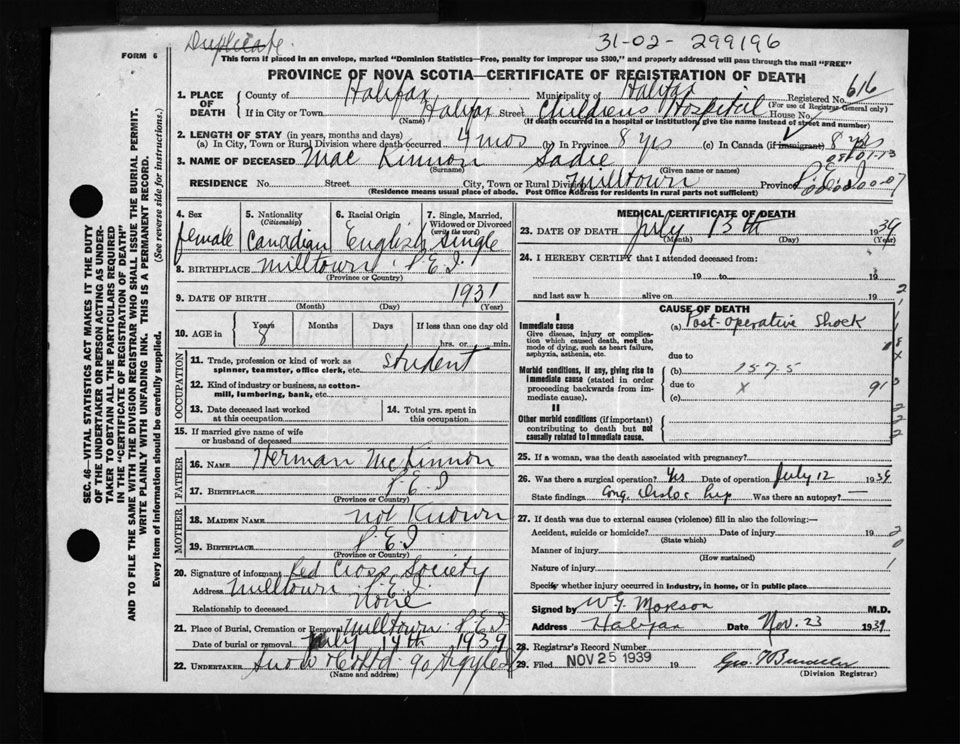 Duplicate
31-02- 299196
FORM 6
This form if placed in an envelope, marked "Dominion Statistics—Free, penalty for improper use $300," and properly addressed will pass through the mail "FREE"
PROVINCE OF NOVA SCOTIA—CERTIFICATE OF REGISTRATION OF DEATH
1. PLACE OF DEATH County of Halifax Municipality of Halifax Registered No. 616
(For use of Registrar General only)
If in City or Town Halifax Street Children's Hospital House No.
(Name) (If death occurred in a hospital or institution, give the name instead of street and number)
2. LENGTH OF STAY (in years, months and days)
(a) In City, Town or Rural Division where death occurred 4 mos (b) In Province 8 yrs (c) In Canada (if immigrant) 8 yrs
3. NAME OF DECEASED Mac Kinnon Sadie
(Surname) (Given name or names)
RESIDENCE No. Street City, Town or Rural Division Milltown Province P.E.I.
(Residence means usual place of abode. Post Office Address for residents in rural parts not sufficient)
4. Sex female
5. Nationality (Citizenship) Canadian
6. Racial Origin English
7. Single, Married, Widowed or Divorced (write the word) Single
8. BIRTHPLACE Milltown P.E.I.
(Province or Country)
9. DATE OF BIRTH 1931
(Month) (Day) (Year)
10. AGE in Years 8 Months Days If less than one day old
hrs. or min.
OCCUPATION
11. Trade, profession or kind of work as spinner, teamster, office clerk, etc. Student
12. Kind of industry or business, as cotton-mill, lumbering, bank, etc.
13. Date deceased last worked at this occupation
14. Total yrs. spent in this occupation
15. If married give name of wife or husband of deceased
FATHER
16. NAME Herman McKinnon
17. BIRTHPLACE P.E.I
(Province or Country)
MOTHER
18. MAIDEN NAME not Known
19. BIRTHPLACE P.E.I
(Province or Country)
20. Signature of informant Red Cross Society
Address Milltown P.E.I.
Relationship to deceased None
21. Place of Burial, Cremation or Removal Milltown P.E.I
Date of burial or removal July 14th 1939
22. UNDERTAKER Snow & Co Ltd 90 Argyle St
(Name and address)
MEDICAL CERTIFICATE OF DEATH
23. DATE OF DEATH July 13th 1939
(Month) (Day) (Year)
24. I HEREBY CERTIFY that I attended deceased from:
19 to 19
and last saw h alive on 19
CAUSE OF DEATH
I
Immediate cause
Give disease, injury or complication which caused death, not the mode of dying, such as heart failure, asphyxia, asthenia, etc.
(a) Post-operative Shock
due to
Morbid conditions, if any, giving rise to immediate cause (stated in order proceeding backwards from immediate cause).
(b) 157.5
due to x
(c)
II
Other morbid conditions (if important) contributing to death but not causally related to immediate cause.
25. If a woman, was the death associated with pregnancy?
26. Was there a surgical operation? Yes Date of operation July 12 1939
State findings Cong Disloc hip Was there an autopsy? —
27. If death was due to external causes (violence) fill in also the following:—
Accident, suicide or homicide? Date of injury 19
(State which)
Manner of injury
(How sustained)
Nature of injury
Specify whether injury occurred in industry, in home, or in public place
Signed by M.D.
Address Halifax Date Nov. 23 1939
28. Registrar's Record Number
29. Filed NOV 25 1939 19
(Division Registrar)
SEC. 46—VITAL STATISTICS ACT MAKES IT THE DUTY OF THE UNDERTAKER OR PERSON ACTING AS UNDERTAKER TO OBTAIN ALL THE PARTICULARS REQUIRED IN THE "CERTIFICATE OF REGISTRATION OF DEATH" AND TO FILE THE SAME WITH THE DIVISION REGISTRAR WHO SHALL ISSUE THE BURIAL PERMIT.
WRITE PLAINLY WITH UNFADING INK. THIS IS A PERMANENT RECORD.
Every item of information should be carefully supplied. (See reverse side for instructions.)